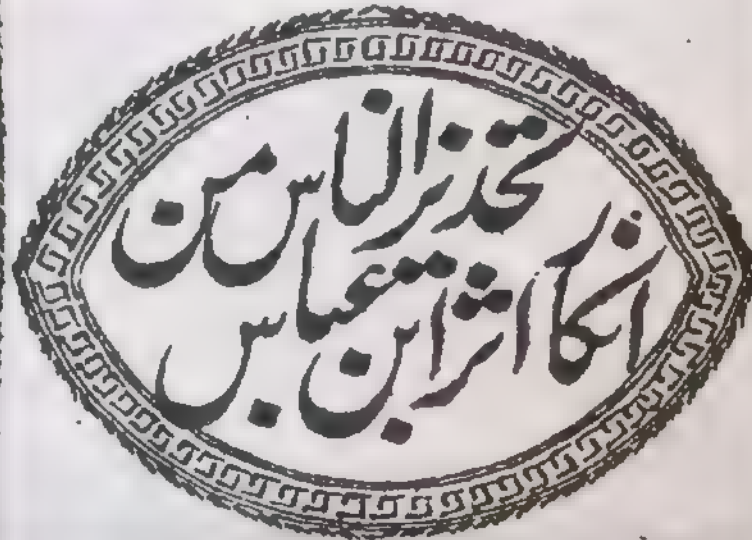 تحذیر الناس من
انکار اثر ابن عباس